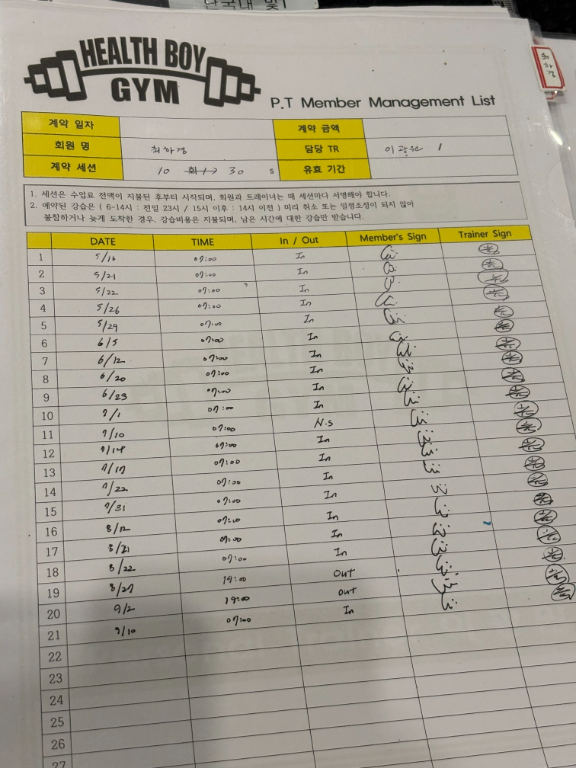 HEALTH BOY
GYM
P.T Member Management List
계약 일자 계약 금액
회원 명 최하경 담당 TR 이광원 1
계약 세션 10 30 s 유효 기간
1. 세션은 수업료 전액이 지불된 후부터 시작되며, 회원과 트레이너는 매 세션마다 서명해야 합니다.
2. 예약된 강습은 ( 6-14시 : 전일 23시 / 15시 이후 : 14시 이전 ) 미리 취소 또는 일정조정이 되지 않아
불참하거나 늦게 도착한 경우, 강습비용은 지불되며, 남은 시간에 대한 강습만 받습니다.
DATE TIME In / Out Member's Sign Trainer Sign
1 5/16 07:00 In
2 5/21 07:00 In
3 5/22 07:00 In
4 5/26 07:00 In
5 5/29 07:00 In
6 6/5 07:00 In
7 6/12 07:00 In
8 6/20 07:00 In
9 6/23 07:00 In
10 7/1 07:00 In
11 7/10 07:00 N.S
12 7/14 07:00 In
13 7/17 07:00 In
14 7/22 07:00 In
15 7/31 07:00 In
16 8/12 07:00 In
17 8/21 07:00 In
18 8/22 07:00 In
19 8/27 19:00 out
20 9/2 19:00 out
21 9/10 07:00 In
22
23
24
25
26
27